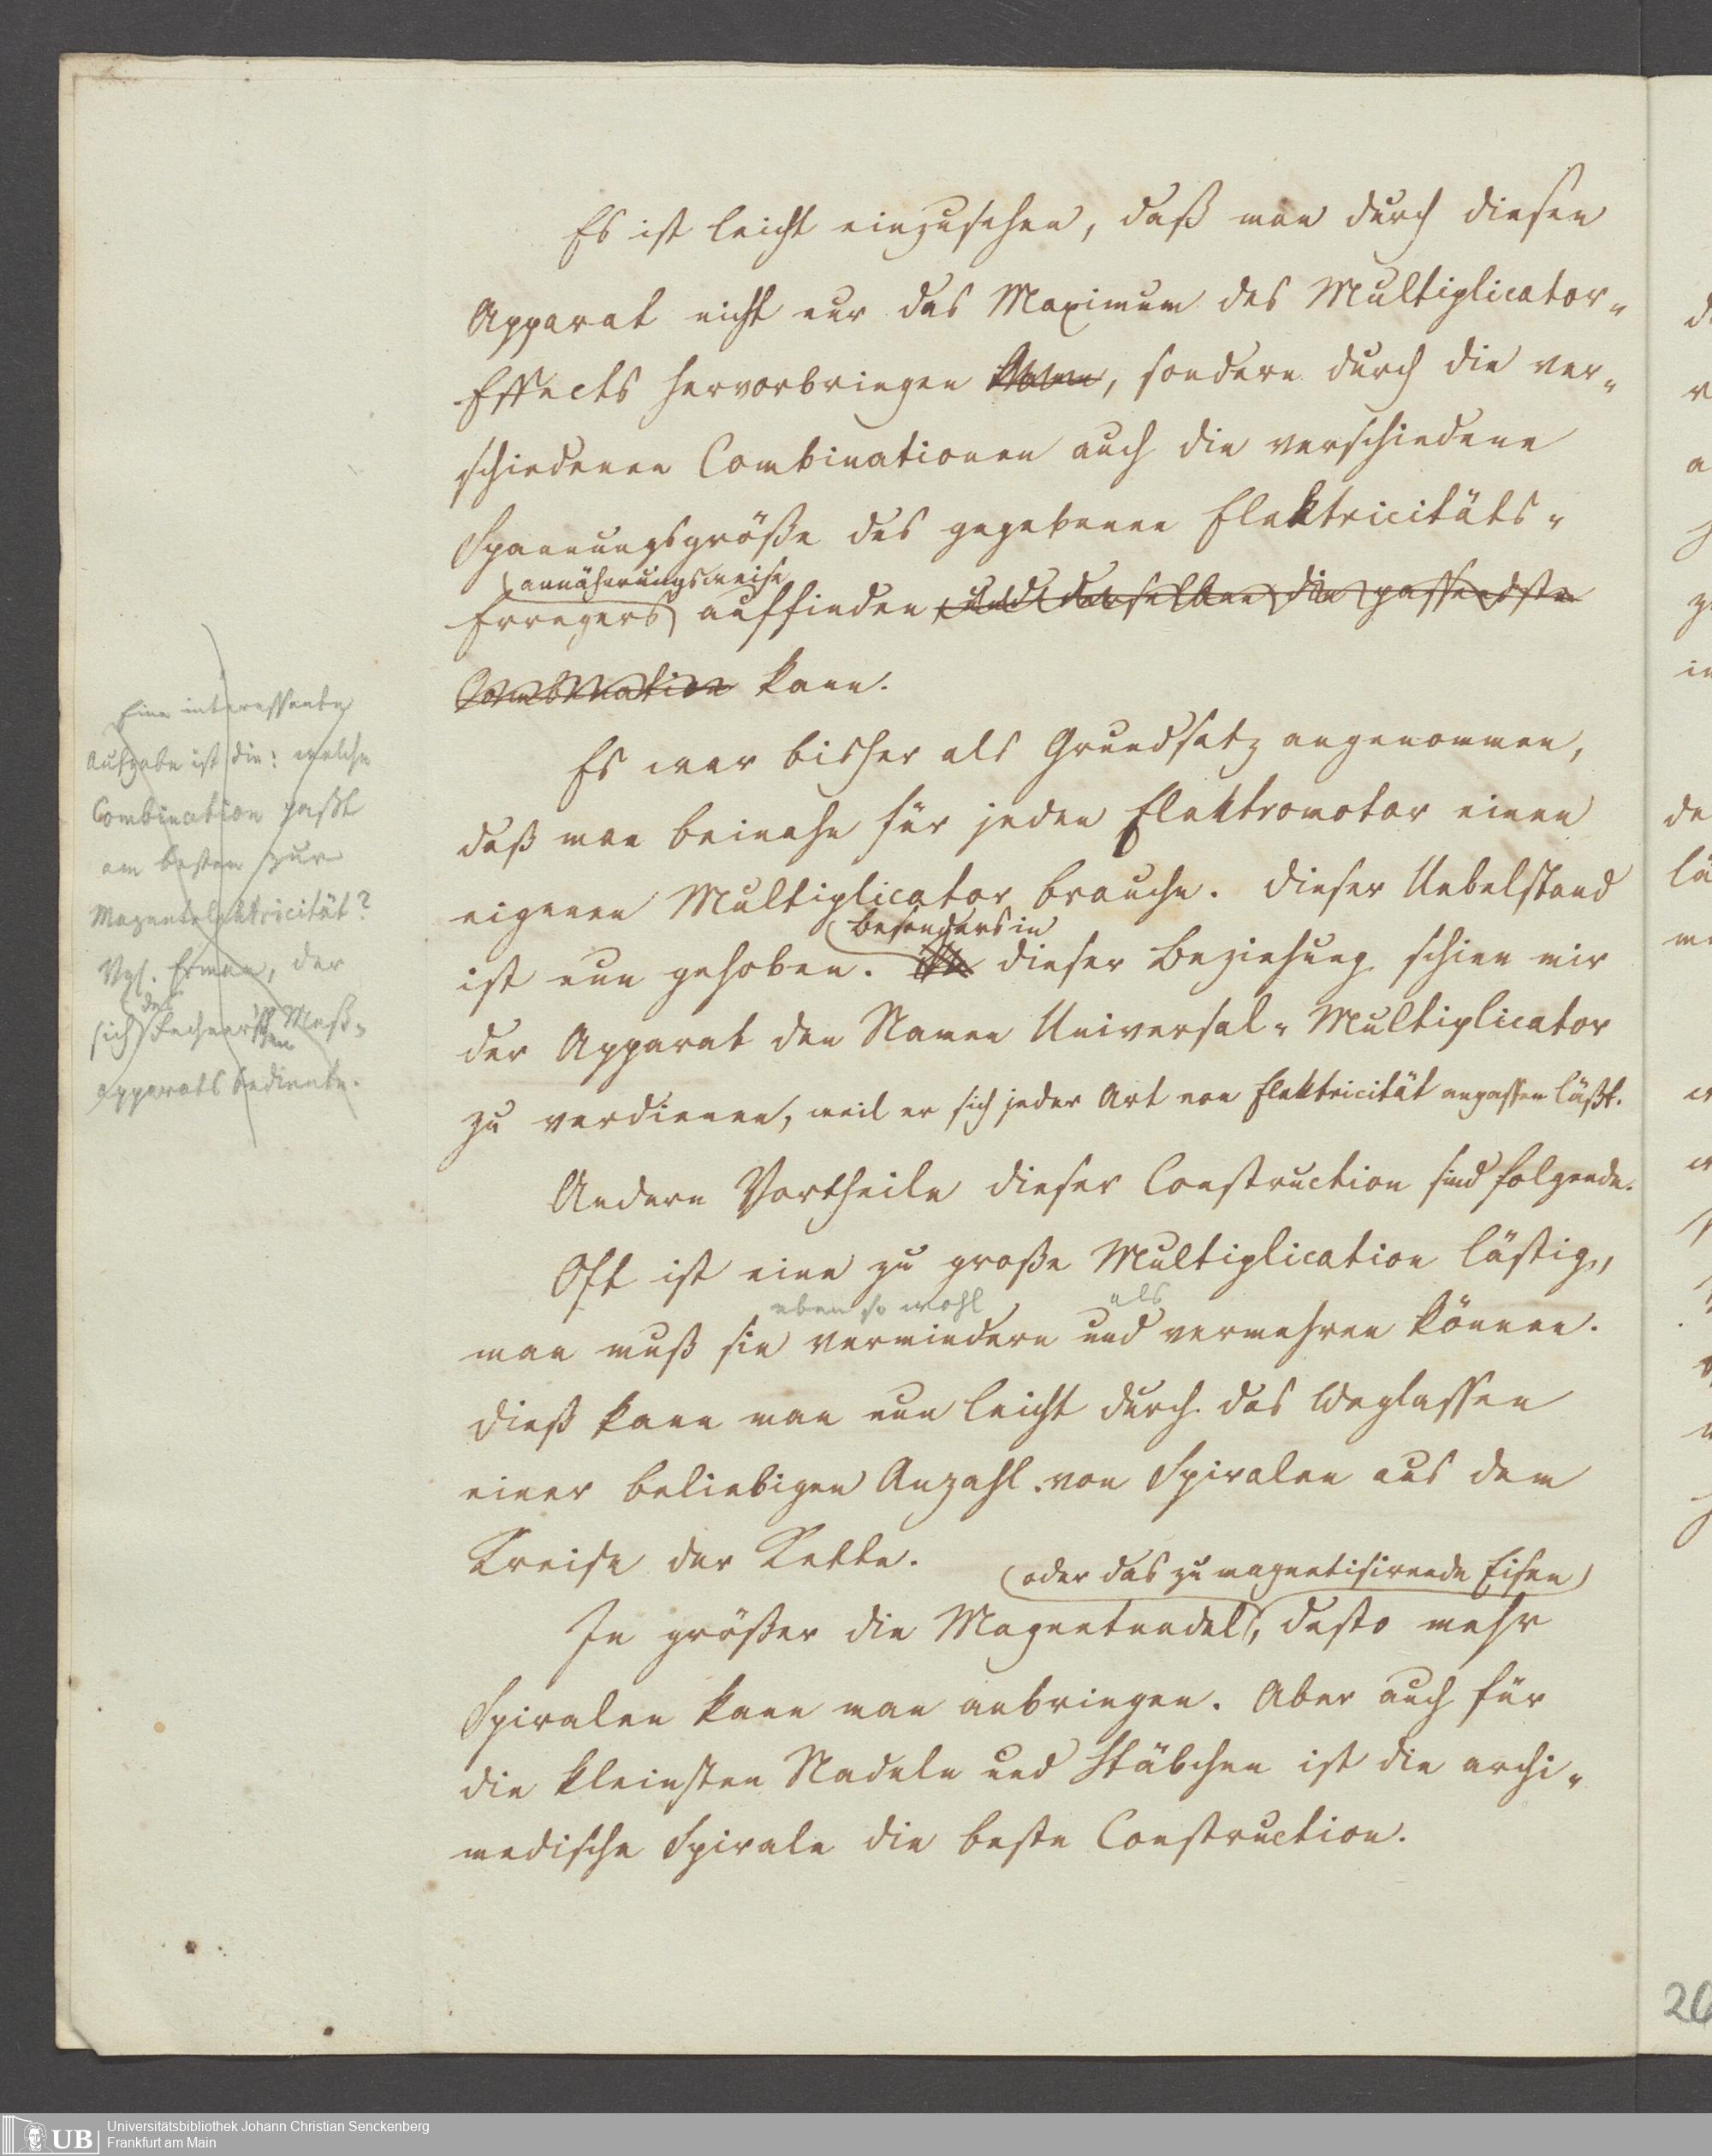 Es ist leicht einzusehen, daß man durch diesen
Apparat nicht nur das Maximum des Multiplicator-
Effects hervorbringen, sondern durch die ver-
schiedenen Combinationen auch die verschiedene
Spannungsgröße des gegebenen Elektricitäts-
annäherungsweise
Erregers auffinden und derselben die passendste
Combination kann.
Es war bisher als Grundsatz angenommen,
daß man beinahe für jeden Elektromotor einen
eigenen Multiplicator brauche. Dieser Uebelstand
besonders in
ist nun gehoben. dieser Beziehung schien mir
der Apparat den Namen Universal-Multiplicator
zu verdienen, weil er sich jeder Art von Elektricität anpassen läßt.
Andere Vortheile dieser Construction sind folgende.
Oft ist eine zu große Multiplication lästig,
eben so wohl als
man muß sie vermindern und vermehren können.
Dieß kann man nun leicht durch das Weglassen
einer beliebigen Anzahl von Spiralen aus dem
Kreise der Kette.
oder das zu magnetisirende Eisen
Je größer die Magnetnadel, desto mehr
Spiralen kann man anbringen. Aber auch für
die kleinsten Nadeln und Stäbchen ist die archi-
medische Spirale die beste Construction.
Eine interessante
Aufgabe ist die: welche
Combination paßt
am besten zur
Magnetelektricität?
Vgl. Erman, der
des
sich Fechnerschen Meß-
apparats bediente.
20
UB
Universitätsbibliothek Johann Christian Senckenberg
Frankfurt am Main